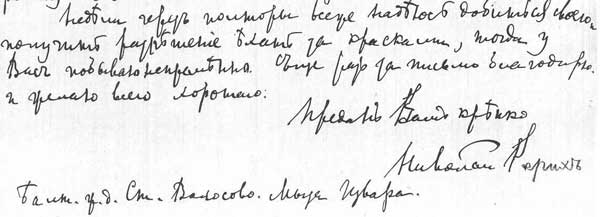 недѣли черезъ полторы все же надѣюсь добиться своего,
получить разрѣшеніе ѣхать за красками, тогда у
Васъ побываю непремѣнно. Еще разъ за письмо благодарю
и желаю всего хорошаго.
Преданъ Вамъ крѣпко
Николай Рерихъ
Балт. ж. д. Ст. Волосово. Мыза Извара.